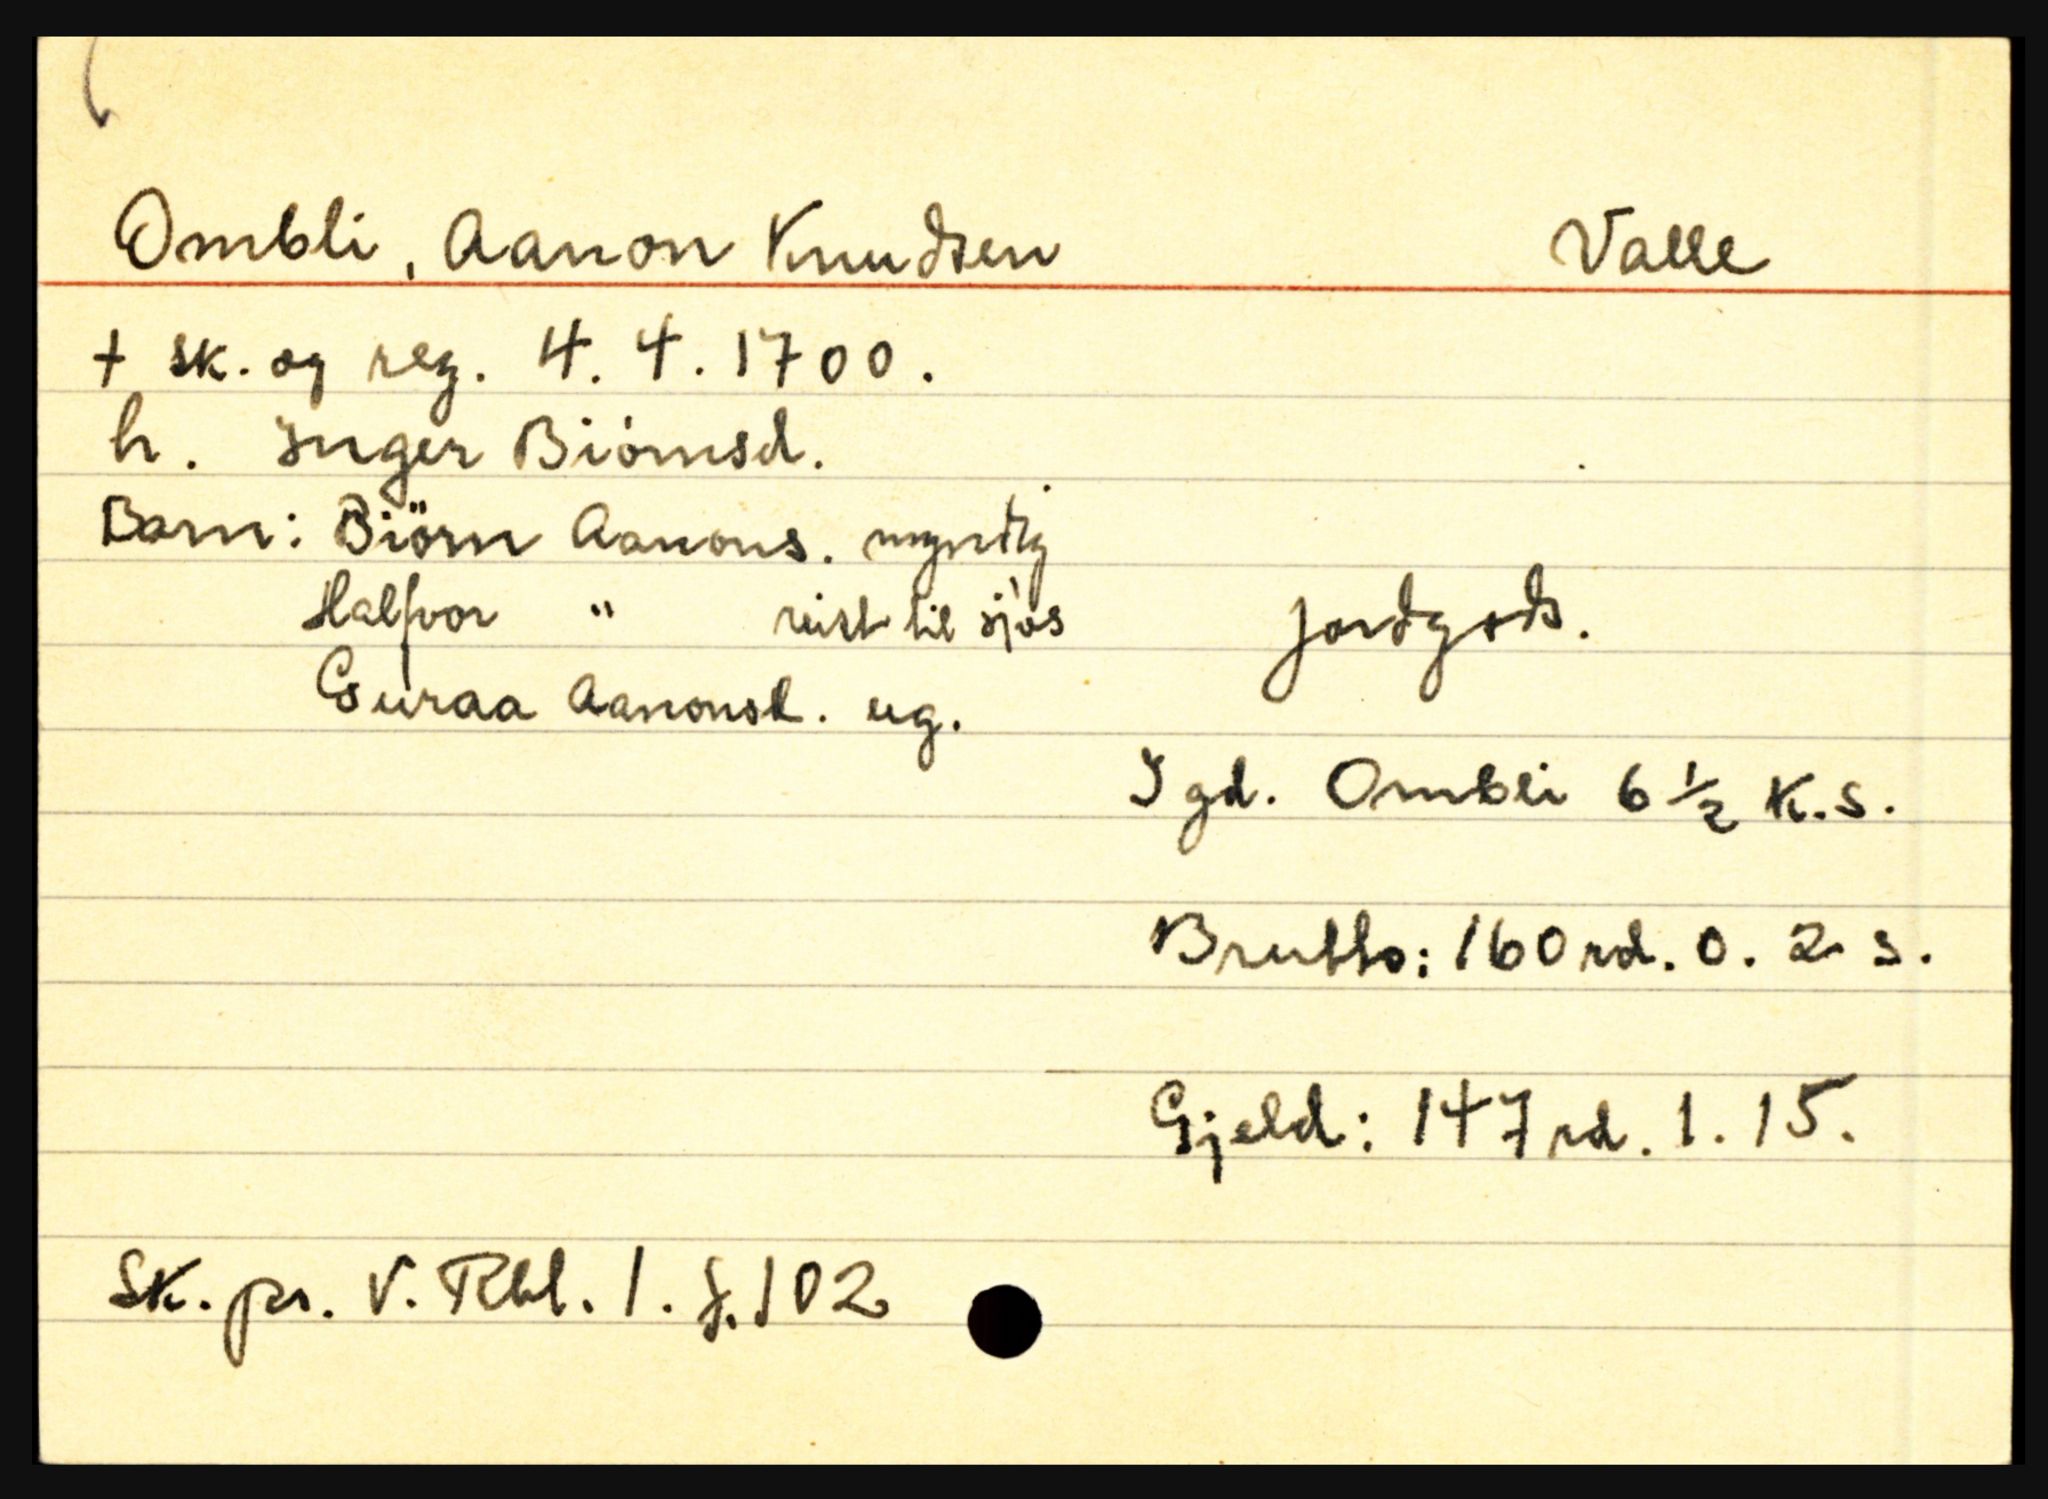 Ombli, Aanon Knudsen Valle
+ sk. og reg. 4. 4. 1700.
h. Inger Biörnsd.
Barn: Biörn Aanons. myndig
Halfvor " reist til sjøs
Guraa Aanonsd. ug.
Jordgods.
I gd. Ombli 6 1/2 k.s.
Brutto: 160 rd. 0. 2 s.
Gjeld: 147 rd. 1. 15.
Sk. pr. V. Rbl. 1. f. 102